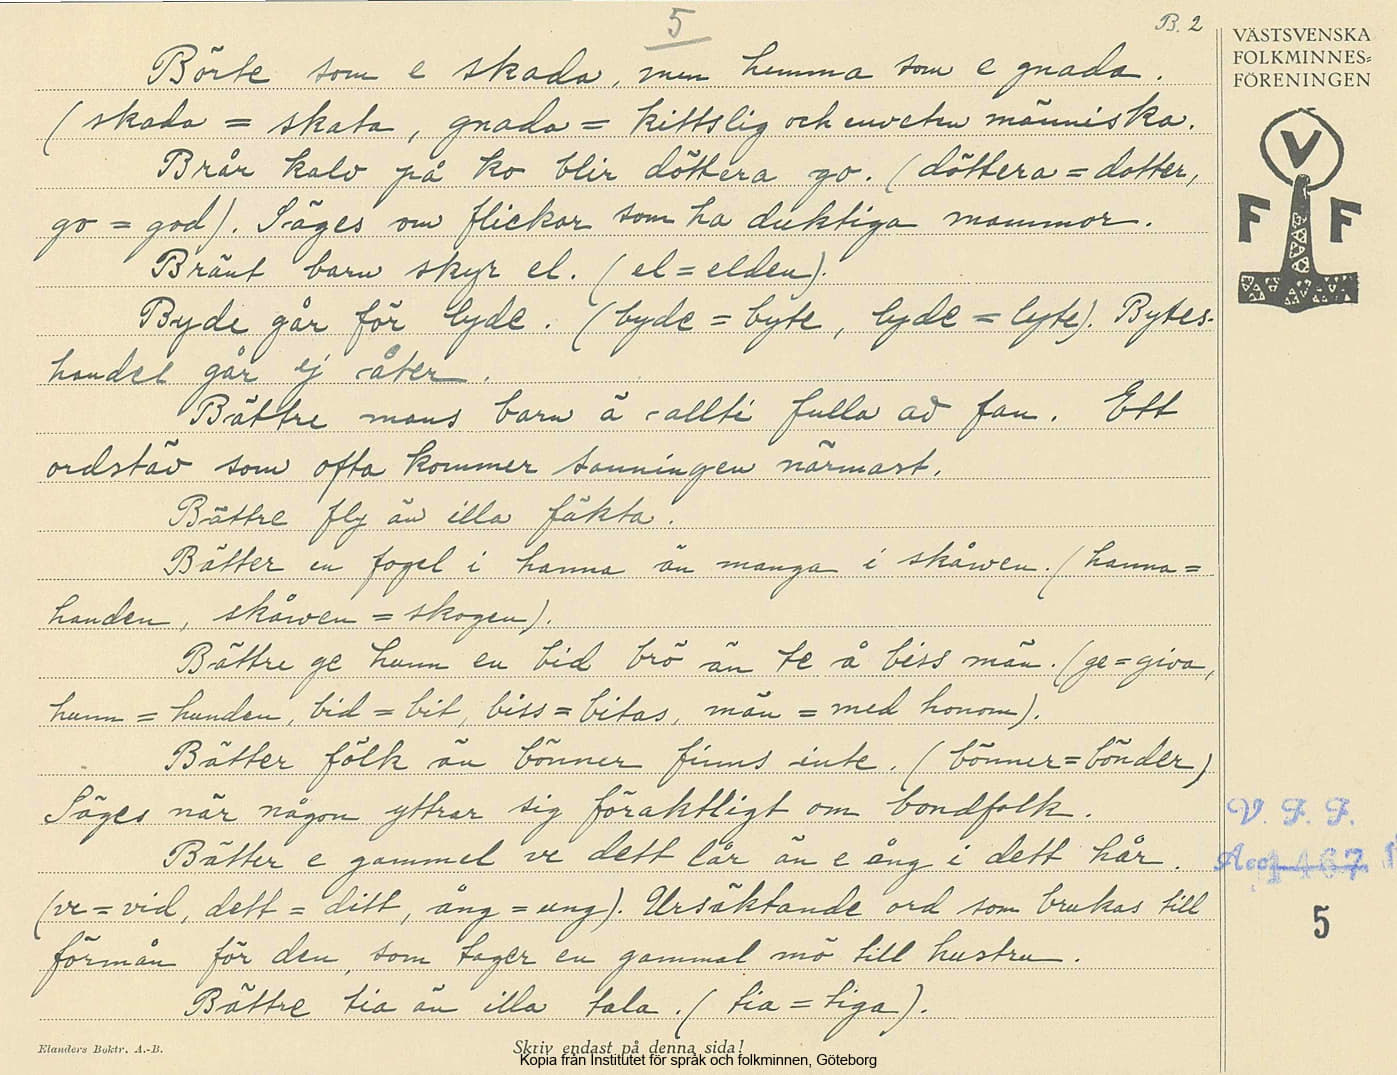 5
B. 2
Börte som e skada, men hemma som e gnada.
(skada = skata, gnada = kittslig och enveten människa.
Brår kalv på ko blir döttera go. (döttera = dotter,
go = god). Säges om flickor som ha duktiga mammor.
Bränt barn skyr el. (el = elden).
Byde går för lyde. (byde = byte, lyde = lyte). Bytes-
handel går ej åter.
Bättre mans barn ä allti fulla av fan. Ett
ordstäv som ofta kommer sanningen närmast.
Bättre fly än illa fäkta.
Bätter en fogel i hanna än manga i skåwen. (hanna =
handen, skåwen = skogen).
Bättre ge hunn en bid brö än te å biss män. (ge = giva,
hunn = hunden, bid = bit, biss = bitas, män = med honom).
Bätter fölk än bönner finns inte. (bönner = bönder)
Säges när någon yttrar sig föraktligt om bondfolk.
Bätter e gammel ve dett lår än e ång i dett hår.
(ve = vid, dett = ditt, ång = ung). Ursäktande ord som brukas till
förmån för den, som tager en gammal mö till hustru.
Bättre tia än illa tala. (tia = tiga).
VÄSTSVENSKA
FOLKMINNES=
FÖRENINGEN
V
F F
V. F. F.
Acc. 1467
5
Elanders Boktr. A.-B.
Skriv endast på denna sida!
Kopia från Institutet för språk och folkminnen, Göteborg